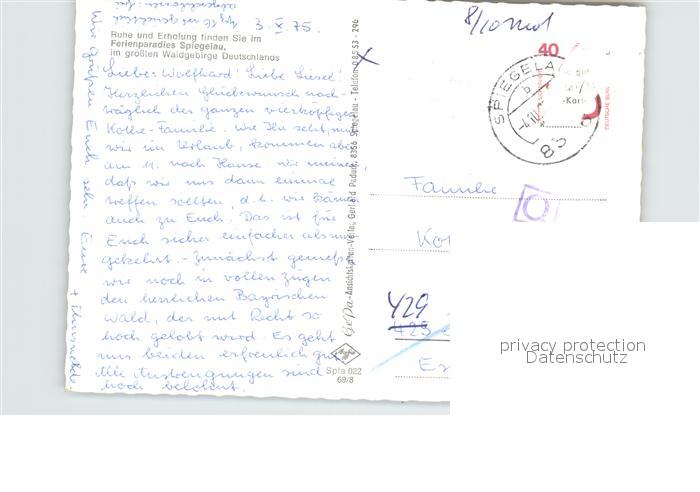 3. X. 75.
Ruhe und Erholung finden Sie im
Ferienparadies Spiegelau,
im größten Waldgebirge Deutschlands
Lieber Wolfhard! Liebe Liesel!
Herzlichen Glückwunsch nach-
träglich der ganzen vierköpfigen
Kothe-Familie. Wie Ihr seht, sind
wir im Urlaub, kommen aber
am 11. nach Hause. Wir meinen,
daß wir uns dann einmal
treffen sollten, d. h. wir kämen
auch zu Euch. Das ist für
Euch sicher einfacher als um-
gekehrt. - Zunächst genießen
wir noch in vollen Zügen
den herrlichen Bayrischen
Wald, der mit Recht so
hoch gelobt wird. Es geht
uns beiden erfreulich gut
Alle Anstrengungen sind
hoch belohnt.
Wir grüßen Euch sehr Eure
+ Thusnelde.
GePa-Ansichtskarten-Verlag, Gerhard Paduck, 8356 Spiegelau - Telefon 0 85 53 - 296
Agfa
Spla 022
69/8
40
DEUTSCHE BUND
SPIEGELAU
b
83
-Kart
Familie
429
425
privacy protection
Datenschutz